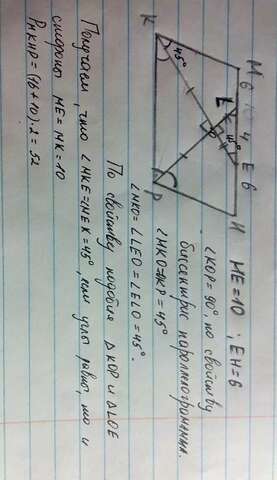 M 6 L 4 E 6 H
45°
45°
K
O
P
ME=10, EH=6
∠KOP = 90°, по свойству
биссектрис пароллелограмма.
∠MKO=∠OKP = 45°
∠MKO=∠LEO=∠ELO=45°.
По свойству подобия ΔKOP и ΔLOE
Получаем, что ∠MKE=∠MEK=45°, если углы равны, то и
стороны ME = MK = 10
P MKHP = (16+10)·2 = 52